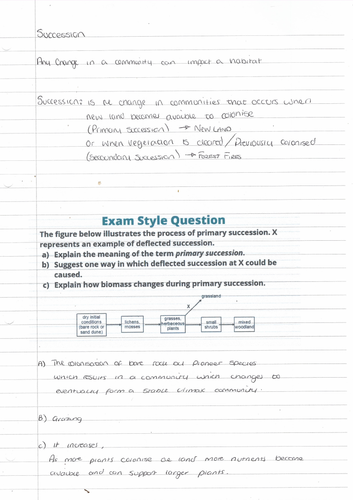 Succession
Any Change in a community can impact a habitat
Succession: is the change in communities that occurs when
new land becomes avaible to colonise
(Primary Succession) → New Land
Or when vegetation is cleared / Previously colonised
(Secondary Succession) → Forest Fires
Exam Style Question
The figure below illustrates the process of primary succession. X
represents an example of deflected succession.
a) Explain the meaning of the term primary succession.
b) Suggest one way in which deflected succession at X could be
caused.
c) Explain how biomass changes during primary succession.
grassland
X
dry initial
conditions
(bare rock or
sand dune)
lichens,
mosses
grasses,
herbaceous
plants
small
shrubs
mixed
woodland
A) The colonisation of bare rock by Pioneer Species
which results in a community which changes to
eventually form a stable climax community.
B) Grazing
c) It increases,
As more plants colonise the land more nutrients become
avaible and can support larger plants.